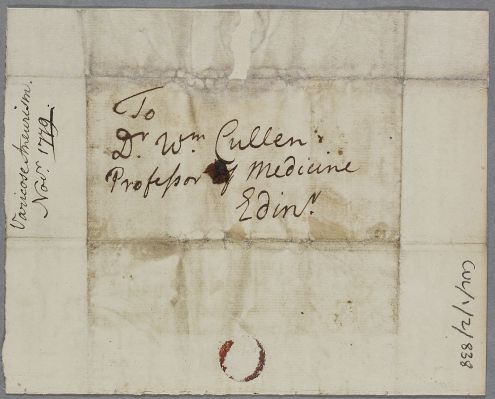 To
Dr. Wm. Cullen
Professor of Medicine
Edinr.
Varicose Aneurism.
Novr. 1779.
CUL/1/2/838